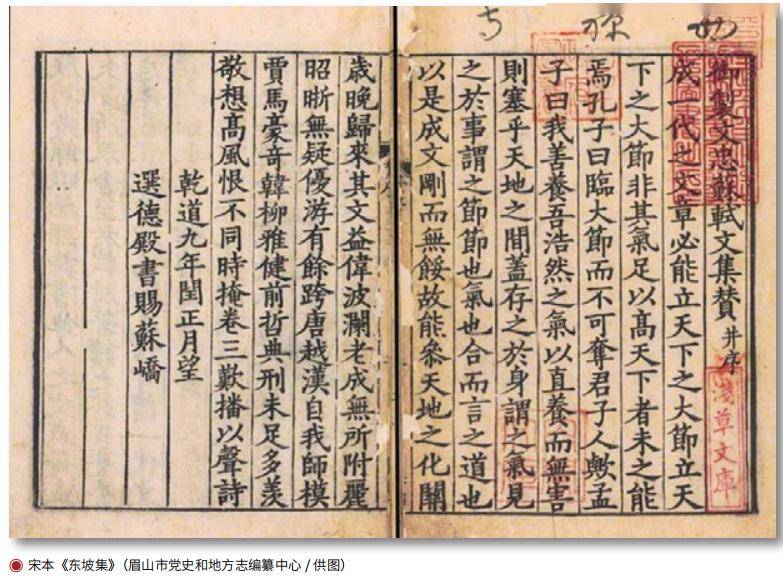 御製文忠蘇軾文集贊 并序
成一代之文章必能立天下之大節立天
下之大節非其氣足以高天下者未之能
焉孔子曰臨大節而不可奪君子人歟孟
子曰我善養吾浩然之氣以直養而無害
則塞乎天地之間蓋存之於身謂之氣見
之於事謂之節節也氣也合而言之道也
以是成文剛而無餒故能叅天地之化關
歲晚歸來其文益偉波瀾老成無所附麗
昭晰無疑優游有餘跨唐越漢自我師模
賈馬豪奇韓柳雅健前哲典刑未足多羨
敬想髙風恨不同時掩卷三歎播以聲詩
乾道九年閏正月望
選德殿書賜蘇嶠
淺草文庫
宋本《东坡集》（眉山市党史和地方志编纂中心 / 供图）